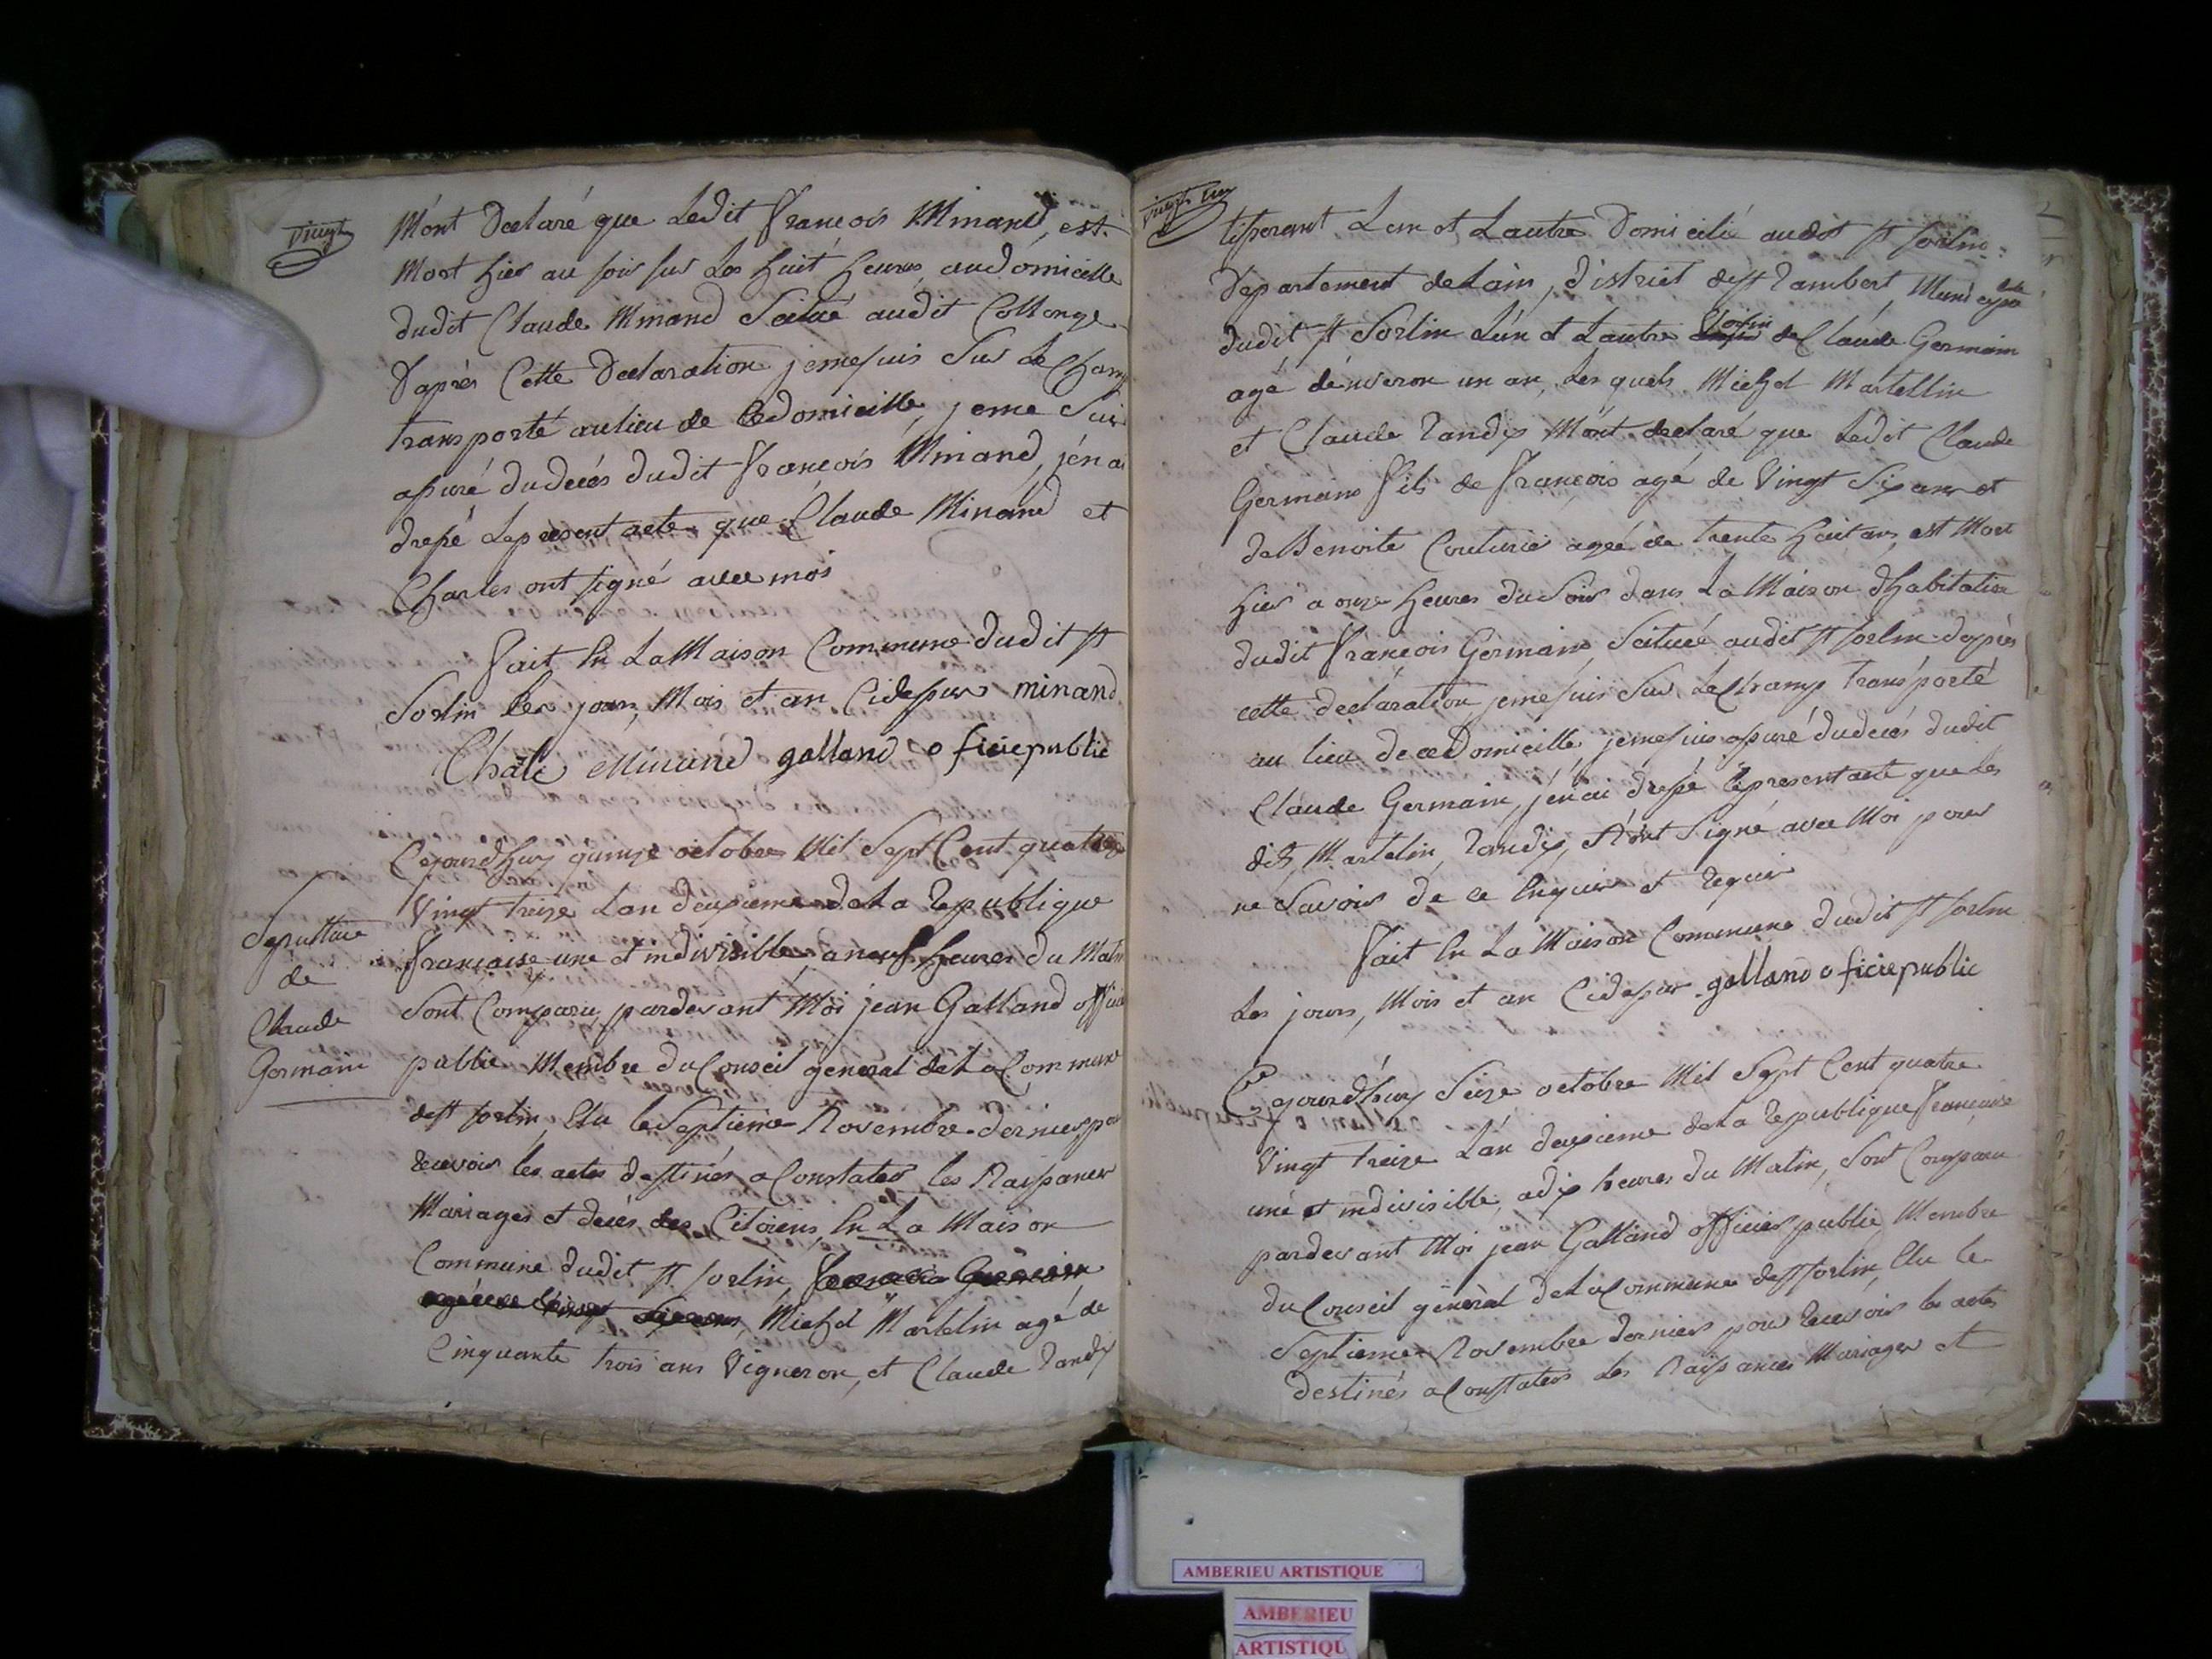 Vingt
Mont Declaré que Ledit François Minand, est
Mort hier au soir sur Les huit heures, au domicille
dudit Claude Minand Scitué audit Collonge
D'apres Cette Declaration je me suis Sur Le Champ
transporté au lieu de ce domicille, je me Suis
assuré du decés dudit François Minand, j'en ai
dressé Le present acte que Claude Minand et
Charles ont signé avec moi
Fait En La Maison Commune dudit St
Sorlin les jour, Mois et an Cidessus minand
Charle Minand galland oficiepublic
Cejourdhuy quinze octobre Mil Sept Cent quatre
Vingt treize Lan deuxieme de La Republique
française une et indivisible a neuf heures du Matin
Sont Comparu pardevant Moi jean Galland officier
public Membre du Conseil general de La Commune
de St Sorlin, Elu le Septieme Novembre dernier pour
recevoir les actes destinés a Constater les Naissances
Mariages et decés des Citoiens, En La Maison
Commune dudit St Sorlin,
Michel Martelin agé de
Cinquante trois ans Vigneron, et Claude Randy
Sepulture
de
Claude
Germain
Vingt un
tisserant Lun et Lautre Domicilié audit St Sorlin
Departement de Lain, district de St Rambert
dudit St Sorlin Lun et Lautre Voisin de Claude Germain
agé denviron un an, Lesquels Michel Martellin
et Claude Randy Mont declaré que Ledit Claude
Germain Fils de François agé de Vingt Six ans et
de Benoite Couturier agée de trente huit ans, est Mort
hier a onze heures du Soir dans La Maison d'habitation
dudit François Germain Scituée audit St Sorlin d'apres
cette declaration je me suis Sur Le Champ transporté
au lieu de ce Domicille je me suis assuré du decés dudit
Claude Germain, j'en ai dressé le present acte que Les
dits, Martelin, Randy, Nont Signé avec Moi pour
ne Savoir de ce Enquis et Requis
Fait En La Maison Commune dudit St Sorlin
Les jours, Mois et an Cidessus galland oficiepublic
Cejourdhuy Seize octobre Mil Sept Cent quatre
Vingt treize Lan deuxieme de La Republique Française
une et indivisible, a dix heures du Matin, Sont Comparu
pardevant Moi jean Galland officier public Membre
du Conseil general de La Commune de St Sorlin, Elu le
Septieme Novembre dernier pour Recevoir les actes
destinés a Constater Les Naissances Mariages et
AMBERIEU ARTISTIQUE
AMBERIEU
ARTISTIQU